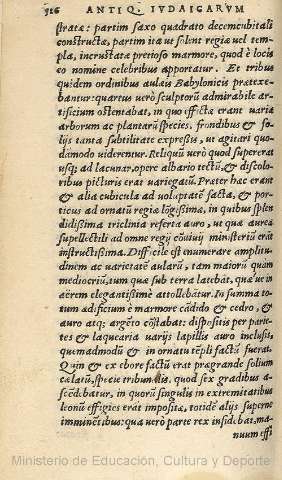 526 ANTIQ. IVDAICARVM
stratæ: partim saxo quadrato decemcubitali
constructæ, partim ita ut solent regiæ uel tem-
pla, incrustatæ pretioso marmore, quod è locis
eo nomine celebribus apportatur. Et tribus
quidem ordinibus aulæis Babylonicis prætexe-
bantur: quartus uerò sculptorũ admirabile ar-
tificium ostentabat, in quo effictæ erant uariæ
arborum ac plantarũ species, frondibus & fo-
lijs tanta subtilitate expressis, ut agitari quo-
dãmodo uiderentur. Reliquũ uerò quod supererat
usq; ad lacunar, opere albario tectũ, & discolo-
ribus picturis erat uariegatũ. Præter hac erant
& alia cubicula ad uoluptatẽ facta, & por-
ticus ad ornatũ regiæ lõgissimæ, in quibus splen
didissima triclinia referta auro, ut quæ aurea
supellectili ad omne regij cõuiuij ministeriũ erãt
instructissima. Difficile est enumerare amplitu-
dinem ac varietatẽ aularũ, tam maiorũ quàm
mediocriũ, tum quæ sub terra latebãt, quàm quæ in
aërem elegantißimè attollebãtur. In summa to-
tum ædificium è marmore cãdido & cedro, &
auro atq; argẽto cõstabat: dispositis per parie-
tes & laquearia varijs lapillis auro inclusis,
quemadmodũ & in ornatu tẽpli factũ fuerat.
Quin & ex ebore factũ erat prægrande solium
cælatũ, specie tribunalis, quod sex gradibus a-
scẽdebatur, in quorũ singulis in extremitatibus
leonũ effigies erat imposita, totidẽ alijs supernè
imminentibus: quà verò parte rex insidebat, ma-
nuum effi
Ministerio de Educación, Cultura y Deporte